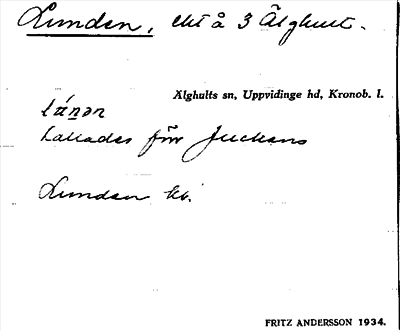 Lunden, ekt å 3 Älghult.
Älghults sn, Uppvidinge hd, Kronob. l.
kallades för Juckans
Lunden kk.
FRITZ ANDERSSON 1934.